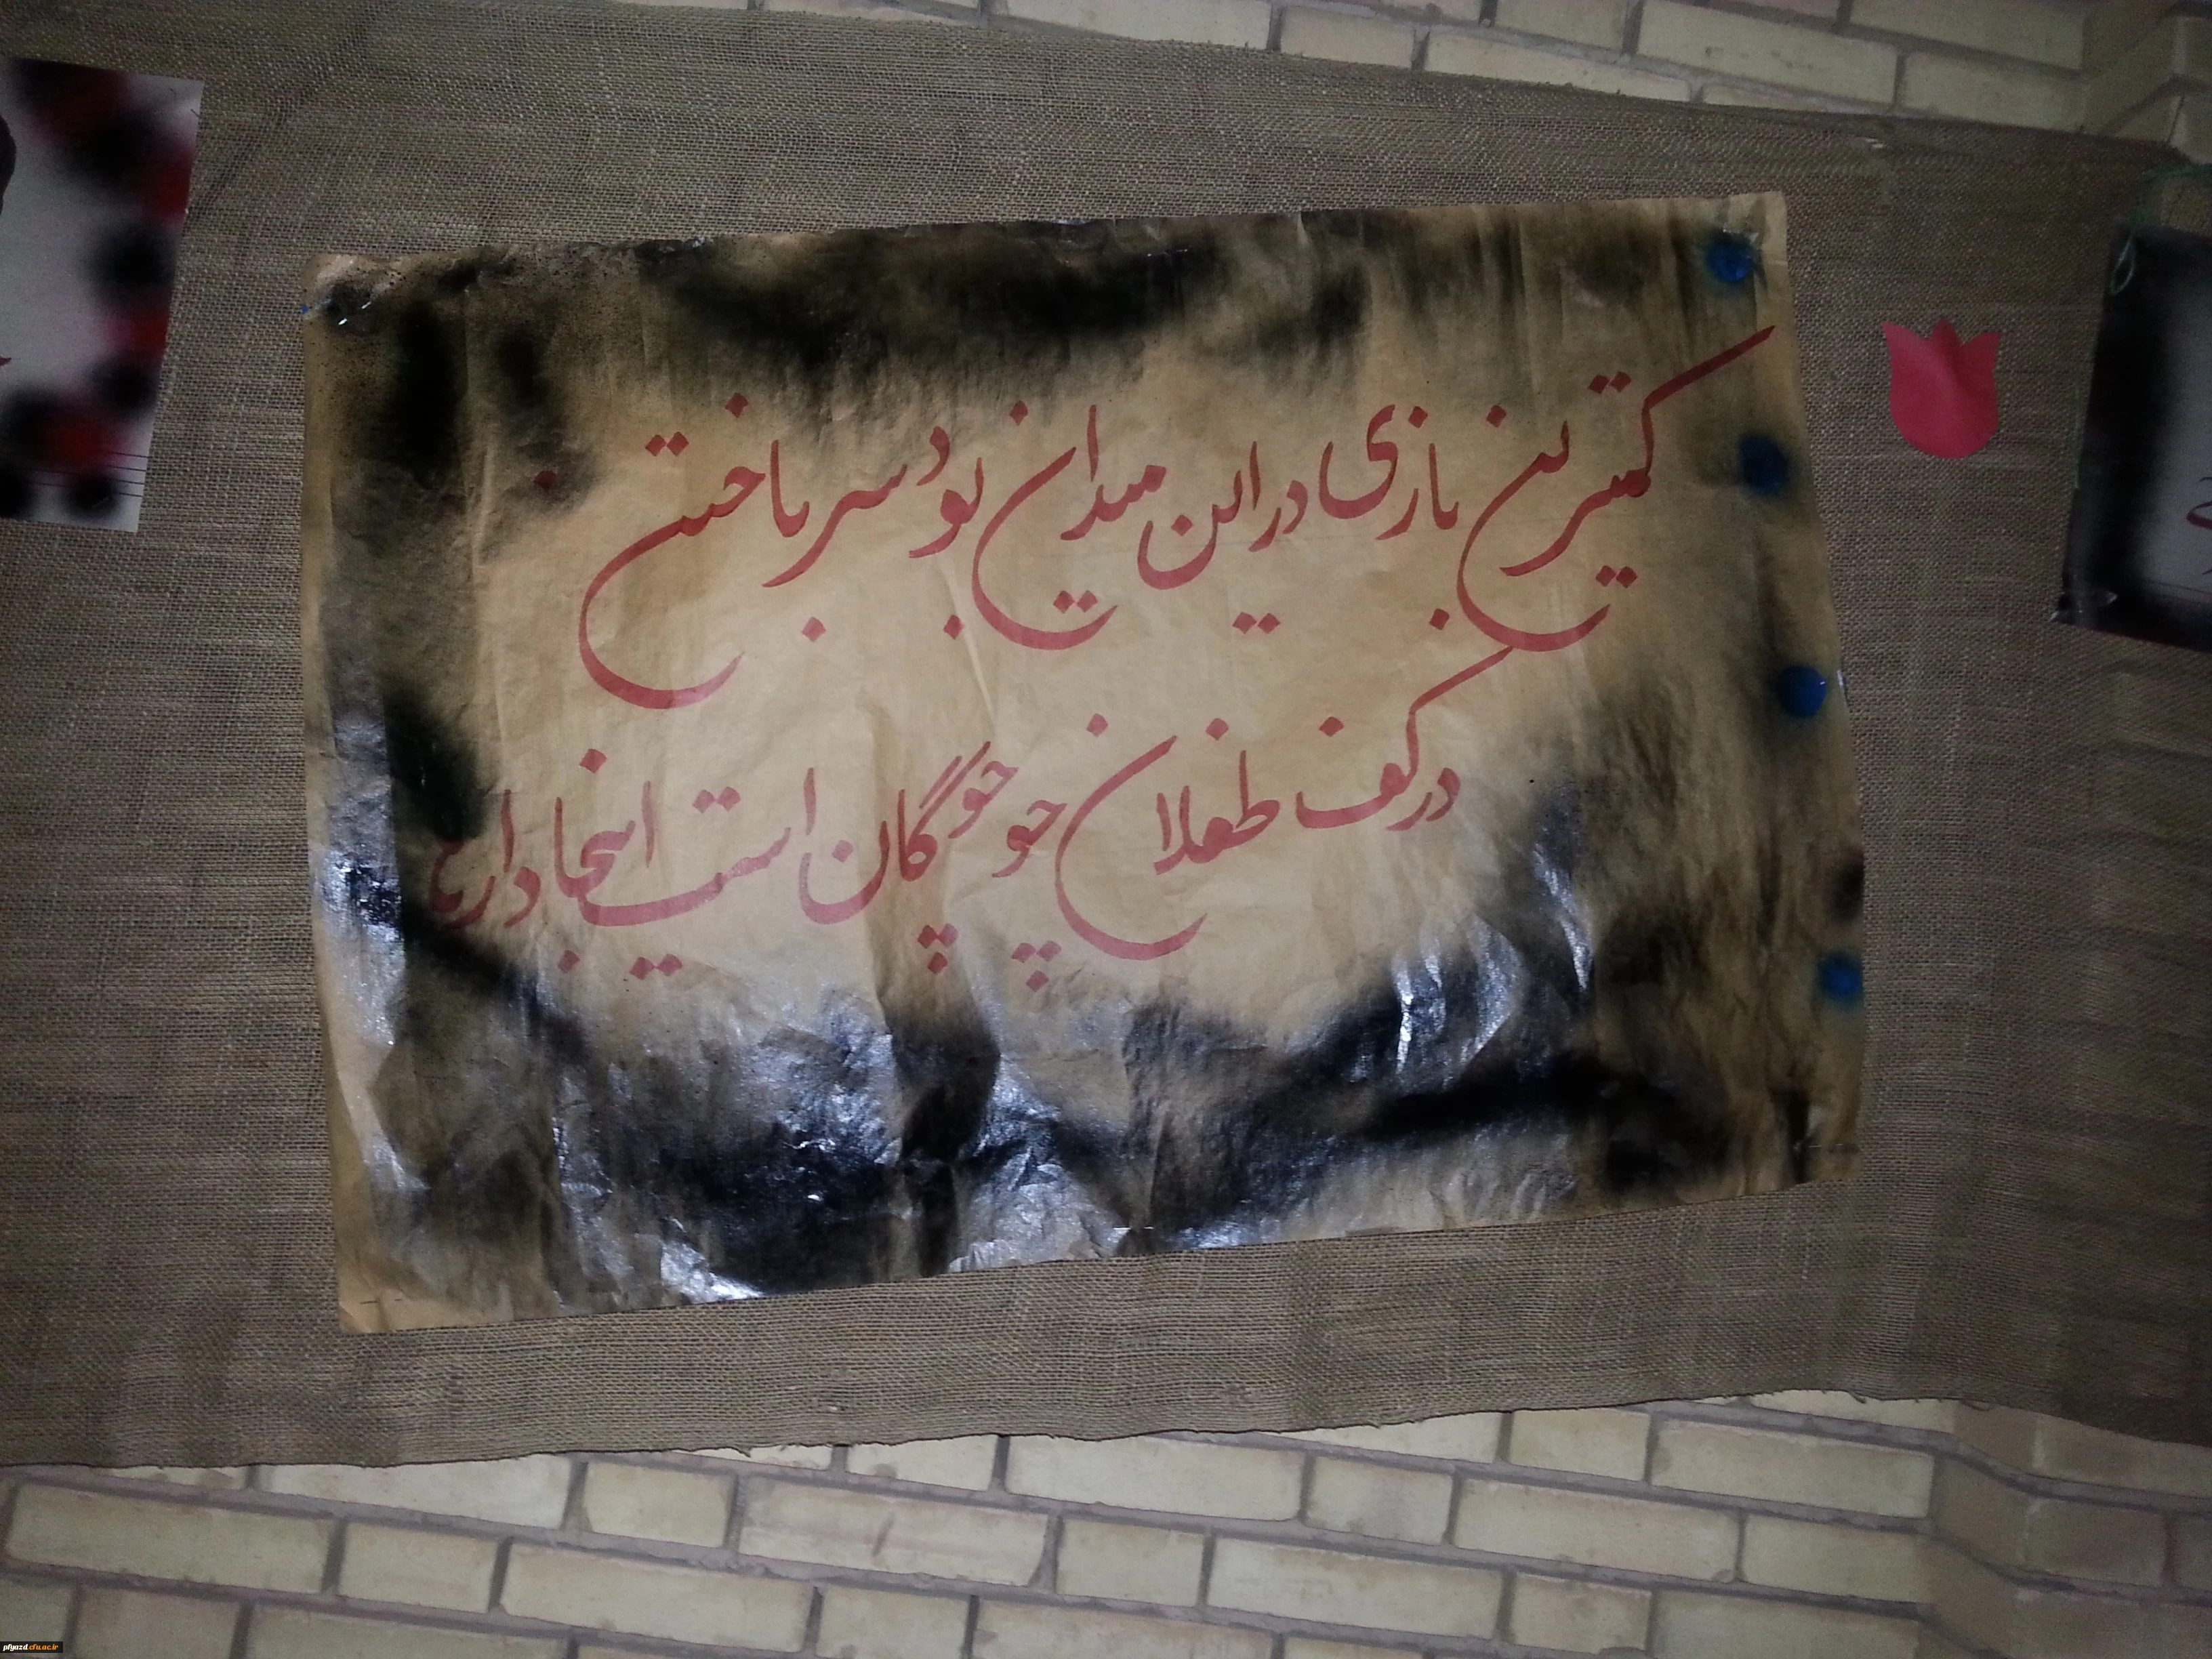 کمترین بازی در این میدان بود سر باختن
در کف طفلان چو چوگان است اینجا دارها
pfyazd.cfu.ac.ir